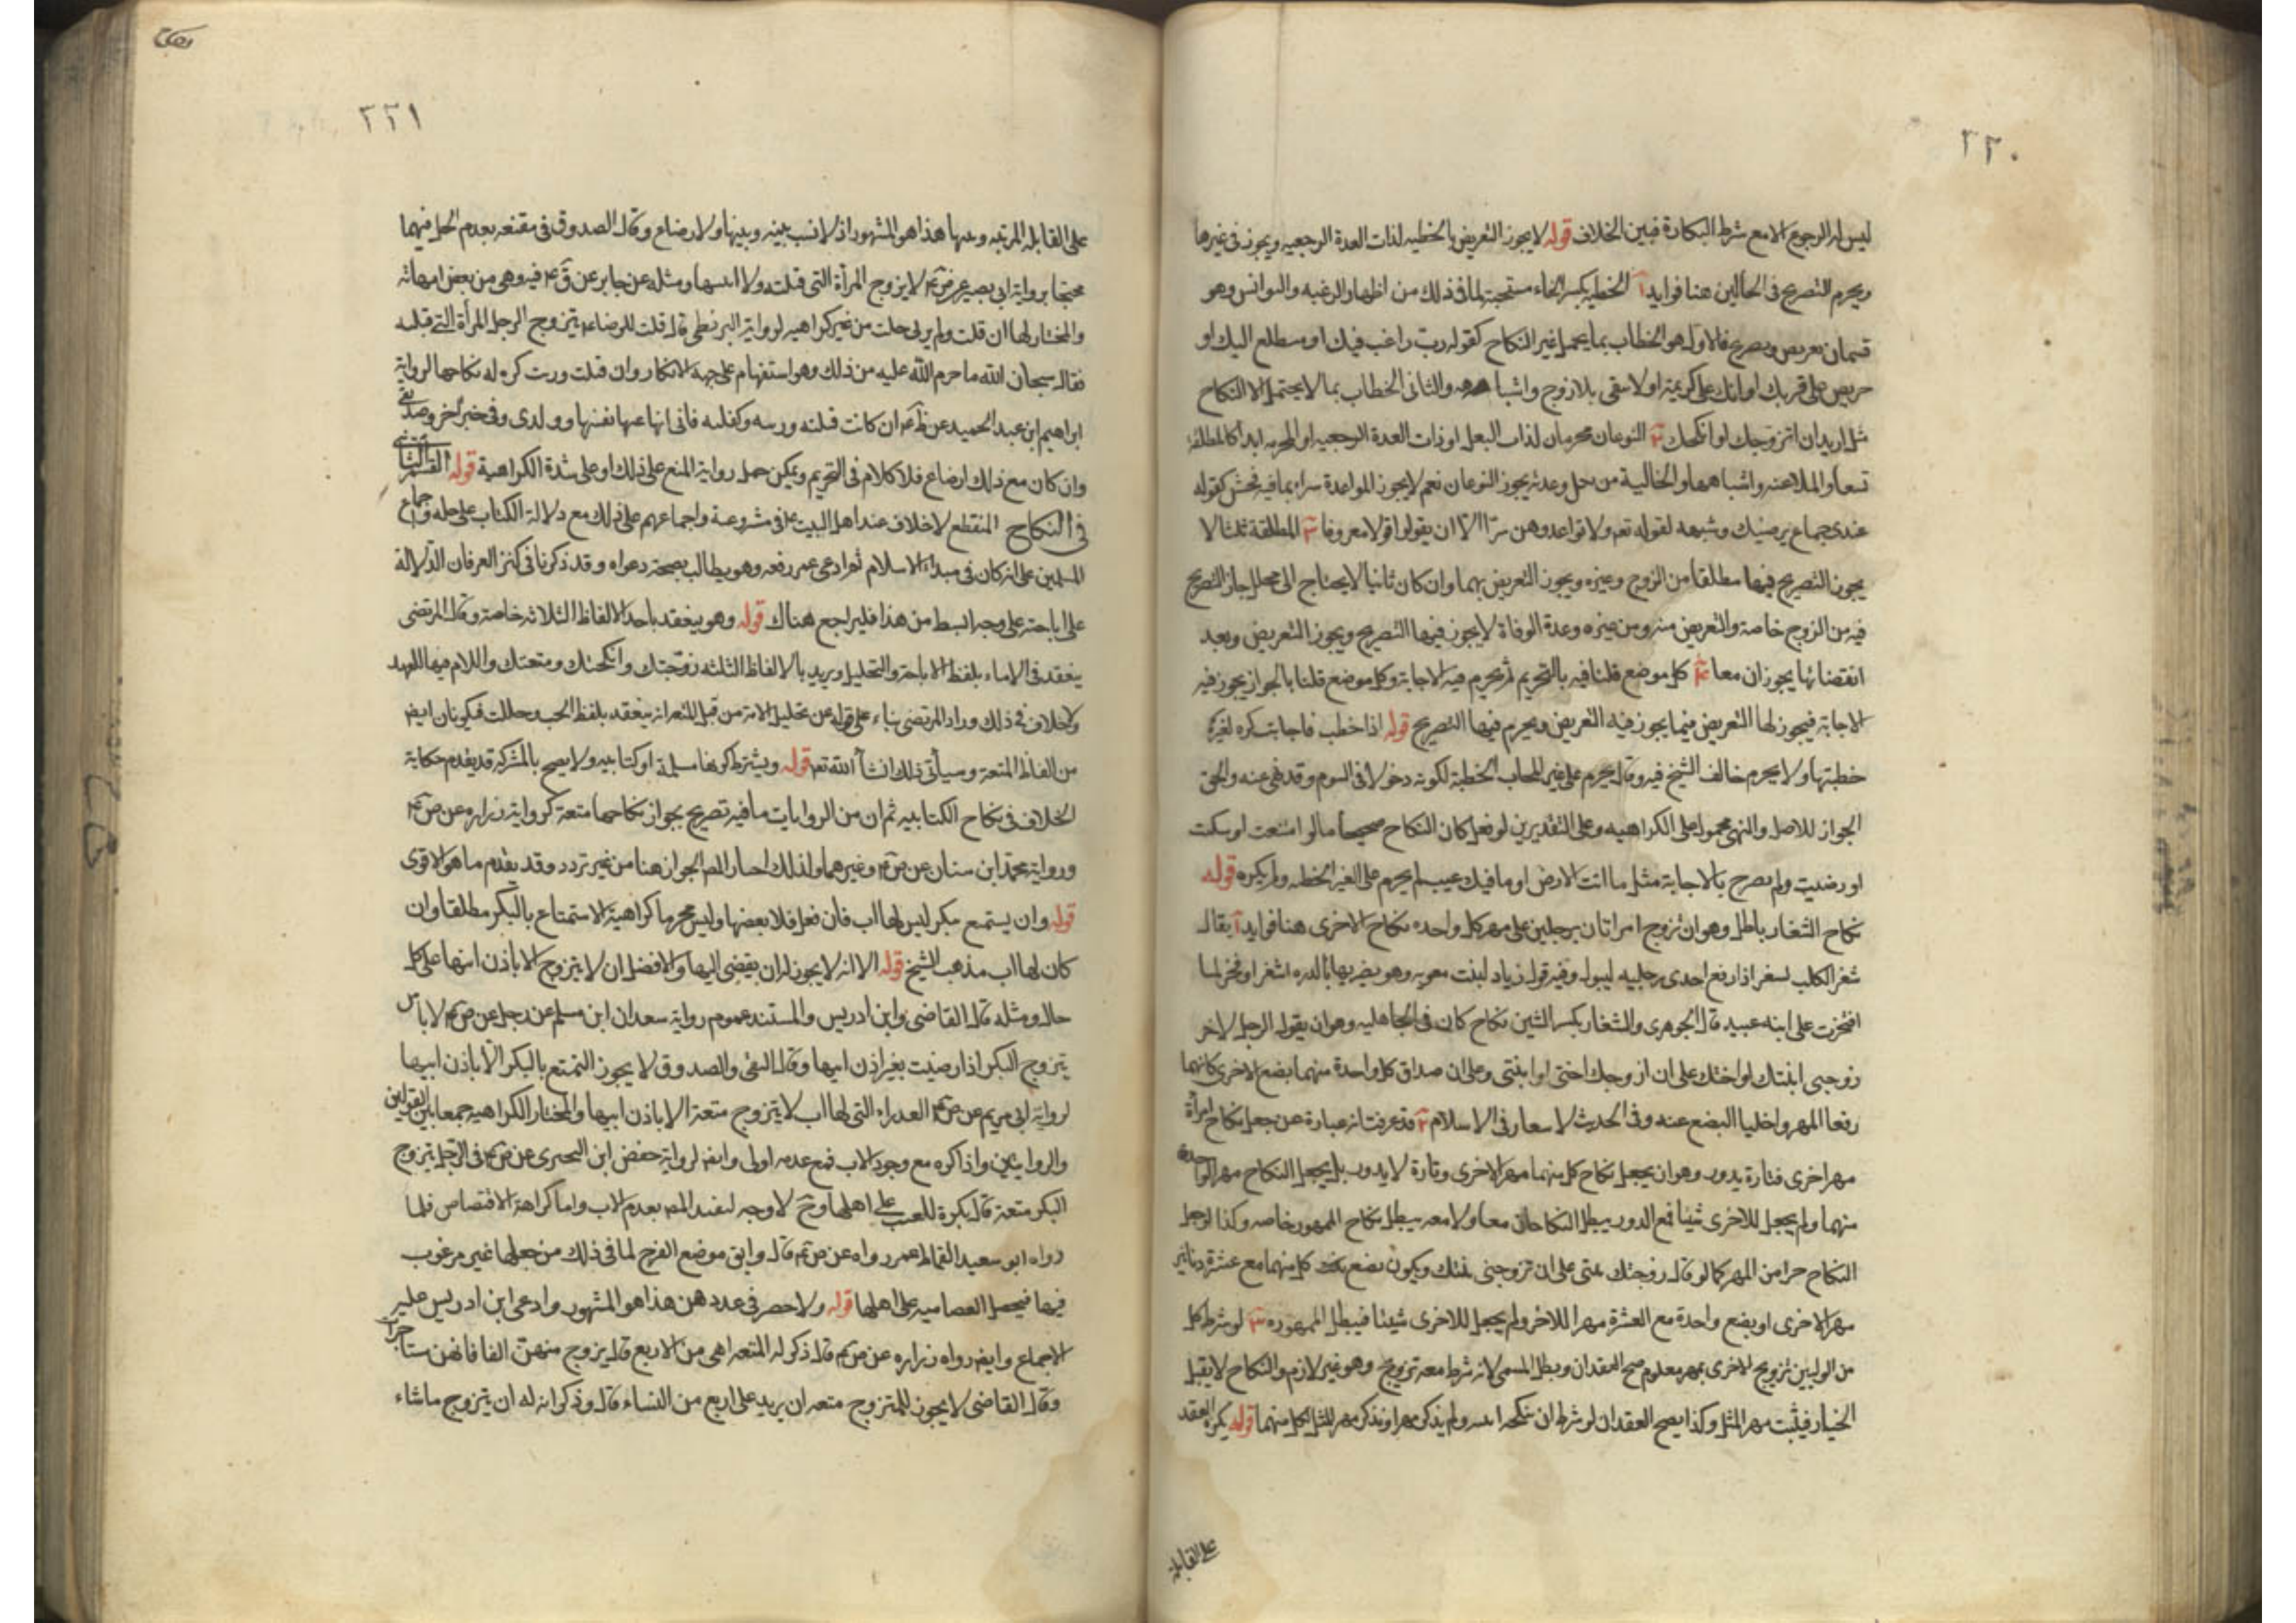 ٢٢٠
ليس له الرجوع الا مع شرط البكارة فبين الخلاف قوله لا يجوز التعريض بالخطبه لذات العدة الرجعيه ويجوز فى غيرها
ويحرم التصريح فى الحالين هنا فوايد آ الخطبه بكسر الخاء مستحبة لما فى ذلك من اظهار الرغبه والتوانس وهو
قسمان تعريض وتصريح فالاول هو الخطاب بما يحتمل غير النكاح كقوله رب راغب فيك او متطلع اليك او
حريص على قربك او انك على كريمة او لا تبقى بلا زوج واشباهه والثانى الخطاب بما لا يحتمل الا النكاح
مثل اريد ان اتزوجك او انكحك النوعان محرمان لذات البعل او ذات العدة الرجعيه او المحرمه ابدا كالمطلقة
تسعا والملاعنه واشباههما والخالية من بعل وعدة يجوز النوعان نعم لا يجوز المواعدة سرا بما فيه فحش كقوله
عندى جماع يرضيك وشبهه لقوله تعم ولا تواعدوهن سرا الا ان يقولوا قولا معروفا المطلقة ثلثا لا
يجوز التصريح فيها مطلقا من الزوج وغيره ويجوز التعريض بهما وان كان ثانيا لا يحتاج الى محلل جاز التصريح
فيه من الزوج خاصة والتعريض منه ومن غيره وعدة الوفاة لا يجوز فيها التصريح ويجوز التعريض وبعد
انقضائها يجوزان معا كل موضع قلنا فيه بالتحريم تحرم فيه الاجابة وكل موضع قلنا بالجواز يجوز فيه
الاجابة فيجوز لها التعريض فيما يجوز فيه التعريض ويحرم فيها التصريح قوله اذا خطب فاجابت كره لغيره
خطبتها ولا يحرم خالف الشيخ فيه وقال يحرم على غير المجاب الخطبة لكونه دخولا فى السوم وقد نهى عنه والحق
الجواز للاصل والنهى محمول على الكراهيه وعلى التقديرين لو فعل كان النكاح صحيحا ما لو امتنعت او سكتت
او رضيت ولم تصرح بالاجابة مثل ما انت الا رضى او ما فيك عيب لم يحرم على الغير الخطبه ولم يكره قوله
نكاح الشغار باطل وهو ان تزوج امراتان برجلين على مهر كل واحده نكاح الاخرى هنا فوايد آ يقال
شغر الكلب يشغر اذا رفع احدى رجليه ليبول وفيه قول زياد لبنت معويه وهو يضربها بالدره اشغرا وفخرا لما
افتخرت على ابنه عبيد قال الجوهرى والشغار بكسر الشين نكاح كان فى الجاهليه وهو ان يقول الرجل لاخر
زوجنى ابنتك او اختك على ان ازوجك اختى او ابنتى وعلى ان صداق كل واحدة منهما بضع الاخرى كانهما
رفعا المهر واخليا البضع عنه وفى الحديث لا شغار فى الاسلام قد عرفت انه عبارة عن جعل نكاح امرأة
مهر اخرى فتارة يدور وهو ان يجعل نكاح كل منهما مهر الاخرى وتارة لا يدور بل يجعل النكاح مهر الواحدة
منهما ولم يجعل للاخرى شيئا فمع الدور يبطل النكاحان معا ولا معه يبطل نكاح الممهور خاصه وكذا لو جعل
النكاح جزا من المهر كما لو قال زوجتك بنتى على ان تزوجنى بنتك ويكون بضع كل منهما مع عشرة دنانير
مهر الاخرى او بضع واحدة مع العشرة مهرا للاخر ولم يجعل للاخرى شيئا فيبطل الممهوره لو شرط كل
من الوليين تزويج الاخرى بمهر معلوم صح العقدان وبطل المسمى لانه شرط معه تزويج وهو غير لازم والنكاح لا يقبل
الخيار فيثبت مهر المثل وكذا يصح العقدان لو شرط ان ينكحه ابنته ولم يذكر مهرا ونذكر مهر المثل لكل منهما قوله يكره العقد
على القابلة
٢٢١
على القابله المربيه وبنتها هذا هو المشهور اذ لا نسب بينه وبينها ولا رضاع وقال الصدوق فى مقنعه بعدم الحل فيهما
محتجا برواية ابى بصير عن ص ع لا يزوج المرأة التى قبلته ولا ابنتها ومثله عن جابر عن ق ع فيه وهى من بعض امهاته
والمختار لها ان قبلت ولم ترب حلت من غير كراهيه لرواية البزنطى قال قلت للرضا ع يتزوج الرجل المرأة التى قبلته
فقال سبحان الله ما حرم الله عليه من ذلك وهو استفهام على جهة الانكار وان قبلت وربت كره له نكاحها لرواية
ابراهيم ابن عبد الحميد عن ظ ع ان كانت قبلته وربته وكفلته فانى انهاى عنها نفسى وولدى وفى خبر اخر وصديقى
وان كان مع ذلك ارضاع فلا كلام فى التحريم ويمكن حمل رواية المنع على ذلك او على شدة الكراهية قوله القسم الثانى
فى النكاح المنقطع لا خلاف عند اهل البيت ع فى مشروعيته واجماعهم على ذلك مع دلالة الكتاب على حله واجماع
المسلمين على انه كان فى مبداء الاسلام ثم ادعى عمر رفعه وهو يطالب بصحة دعواه وقد ذكرنا فى كنز العرفان الدلالة
على اباحته على وجه ابسط من هذا فليراجع هناك قوله وهو ينعقد باحد الالفاظ الثلاثه خاصة وقال المرتضى
ينعقد فى الاماء بلفظ الاباحة والتحليل ويريد بالالفاظ الثلثه زوجتك وانكحتك ومتعتك واللام فيها للعهد
ولا خلاف فى ذلك وزاد المرتضى بناء على قوله عن تحليل الامة من قبيل المتعه انه ينعقد بلفظ ابحت وحللت فيكونان ايضا
من الفاظ المتعة وسيأتى ذلك انشأ الله تعم قوله ويشترط كونها مسلمة او كتابيه ولا يصح بالمشركه قد تقدم حكاية
الخلاف فى نكاح الكتابيه ثم ان من الروايات ما فيه تصريح بجواز نكاحها متعة كرواية زراره عن ص ع
ورواية محمد ابن سنان عن ص ع وغيرهما ولذلك اختار المص الجواز هنا من غير تردد وقد تقدم ما هو الاقوى
قوله وان يستمتع ببكر ليس لها اب فان فعل فلا يفضها وليس محرما كراهية الاستمتاع بالبكر مطلقا وان
كان لها اب مذهب الشيخ قوله الا انه لا يجوز له ان يفضى اليها والافضل ان لا يتزوج الا باذن ابيها على كل
حال ومثله قال القاضى وابن ادريس والمستند عموم رواية سعدان ابن مسلم عن رجل عن ص ع لا باس
بتزوج البكر اذا رضيت بغير اذن ابيها وقال التقى والصدوق لا يجوز التمتع بالبكر الا باذن ابيها
لرواية ابى مريم عن ص ع العذراء التى لها اب لا يتزوج متعة الا باذن ابيها والمختار الكراهية جمعا بين القولين
والروايتين واذا كره مع وجود الاب فمع عدمه اولى وايضا لرواية حفض ابن البحترى عن ص ع فى الرجل يتزوج
البكر متعة قال يكره للعيب على اهلها وح لا وجه لتقييد المص بعدم الاب واما كراهة الافتضاض فلما
رواه ابو سعيد القماط عمن رواه عن ص ع قال واتق موضع الفرج لما فى ذلك من جعلها غير مرغوب
فيها فيحصل الغضاضة على اهلها قوله ولا حصر فى عددهن هذا هو المشهور وادعى ابن ادريس عليه
الاجماع وايضا رواه زراره عن ص ع قال ذكر له المتعه اهى من الاربع قال يزوج منهن الفا فانهن مستاجرات
وقال القاضى لا يجوز للمتزوج متعه ان يزيد على اربع من النساء قال وذكر انه له ان يتزوج ما شاء